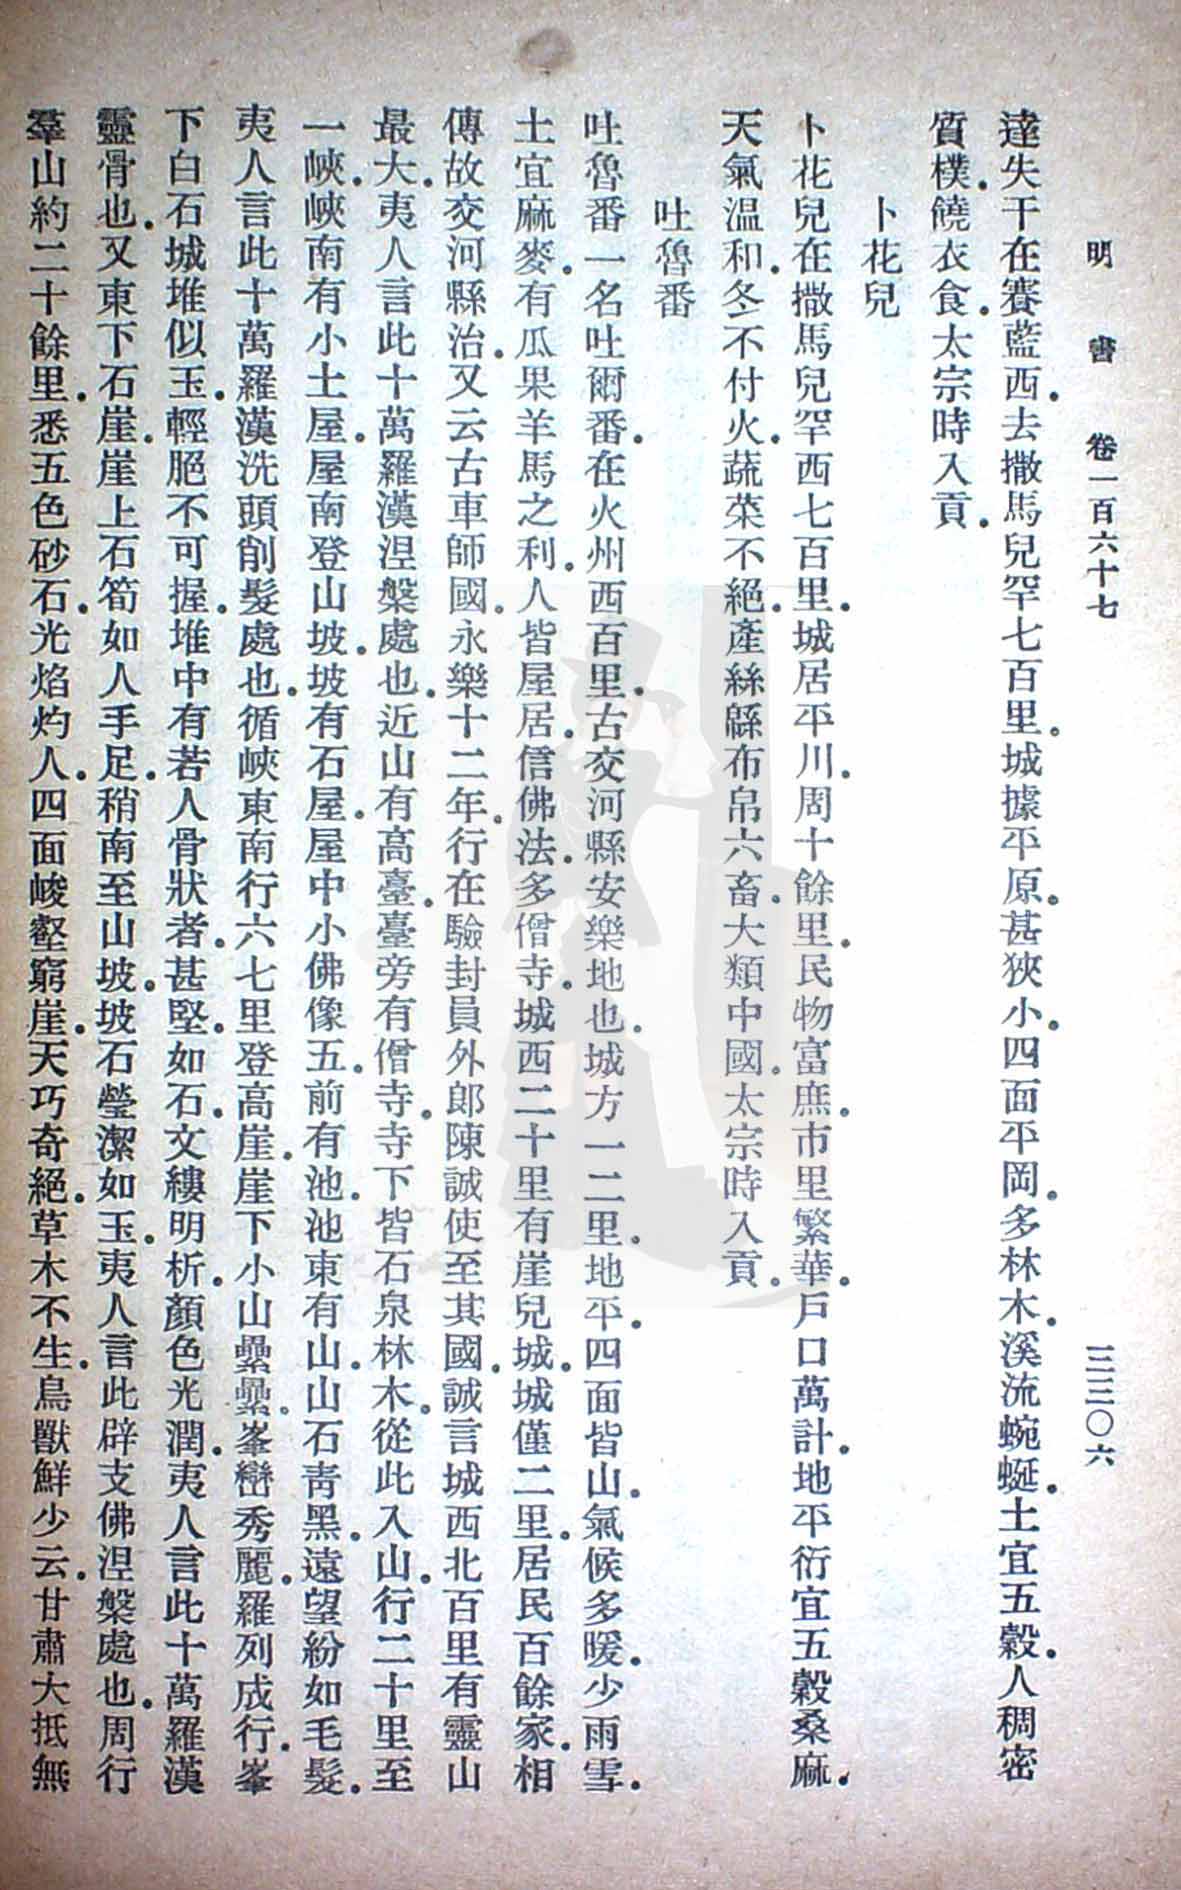 明　書　卷一百六十七　三三〇六
達失干在賽藍西去撒馬兒罕七百里。城據平原。甚狹小。四面平岡。多林木。溪流蜿蜒。土宜五穀。人稠密
質樸。饒衣食。太宗時入貢。
卜花兒
卜花兒在撒馬兒罕西七百里。城居平川。周十餘里。民物富庶。市里繁華。戶口萬計。地平衍宜五穀桑麻。
天氣溫和。冬不付火。蔬菜不絕。產絲緜布帛六畜。大類中國。太宗時入貢。
吐魯番
吐魯番一名吐爾番。在火州西百里。古交河縣安樂地也。城方一二里。地平。四面皆山。氣候多暖。少雨雪。
土宜麻麥。有瓜果羊馬之利。人皆屋居。信佛法。多僧寺。城西二十里有崖兒城。城僅二里。居民百餘家。相
傳故交河縣治。又云古車師國。永樂十二年。行在驗封員外郎陳誠使至其國。誠言城西北百里有靈山
最大。夷人言此十萬羅漢涅槃處也。近山有高臺。臺旁有僧寺。寺下皆石泉林木。從此入山。行二十里至
一峽。峽南有小土屋。屋南登山坡。坡有石屋。屋中小佛像五。前有池。池東有山。山石青黑。遠望紛如毛髮。
夷人言此十萬羅漢洗頭削髮處也。循峽東南行六七里登高崖。崖下小山纍纍。峯巒秀麗。羅列成行。峯
下白石城堆似玉。輕脆不可握。堆中有若人骨狀者。甚堅。如石。文縷明析。顏色光潤。夷人言此十萬羅漢
靈骨也。又東下石崖。崖上石筍如人手足。稍南至山坡。坡石瑩潔如玉。夷人言此辟支佛涅槃處也。周行
羣山約二十餘里。悉五色砂石。光焰灼人。四面峻壑窮崖。天巧奇絕。草木不生。鳥獸鮮少云。甘肅大抵無